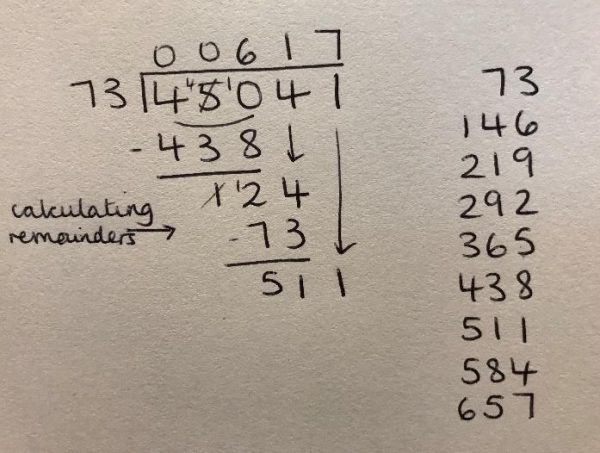 00617
73 4⁴5¹041
-438
1¹24
calculating
remainders →
-73
511
73
146
219
292
365
438
511
584
657